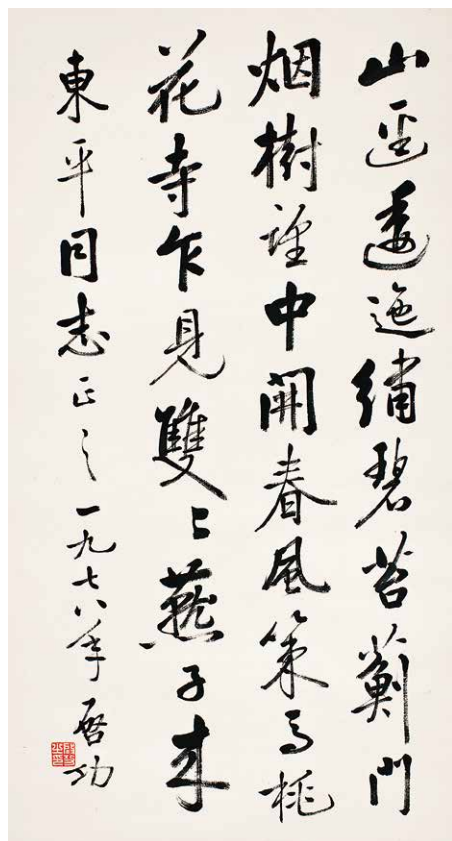 山逕逶迤繡碧苔薊門
烟樹望中開春風策馬桃
花寺乍見雙々燕子来
東平同志正之一九七八年啓功